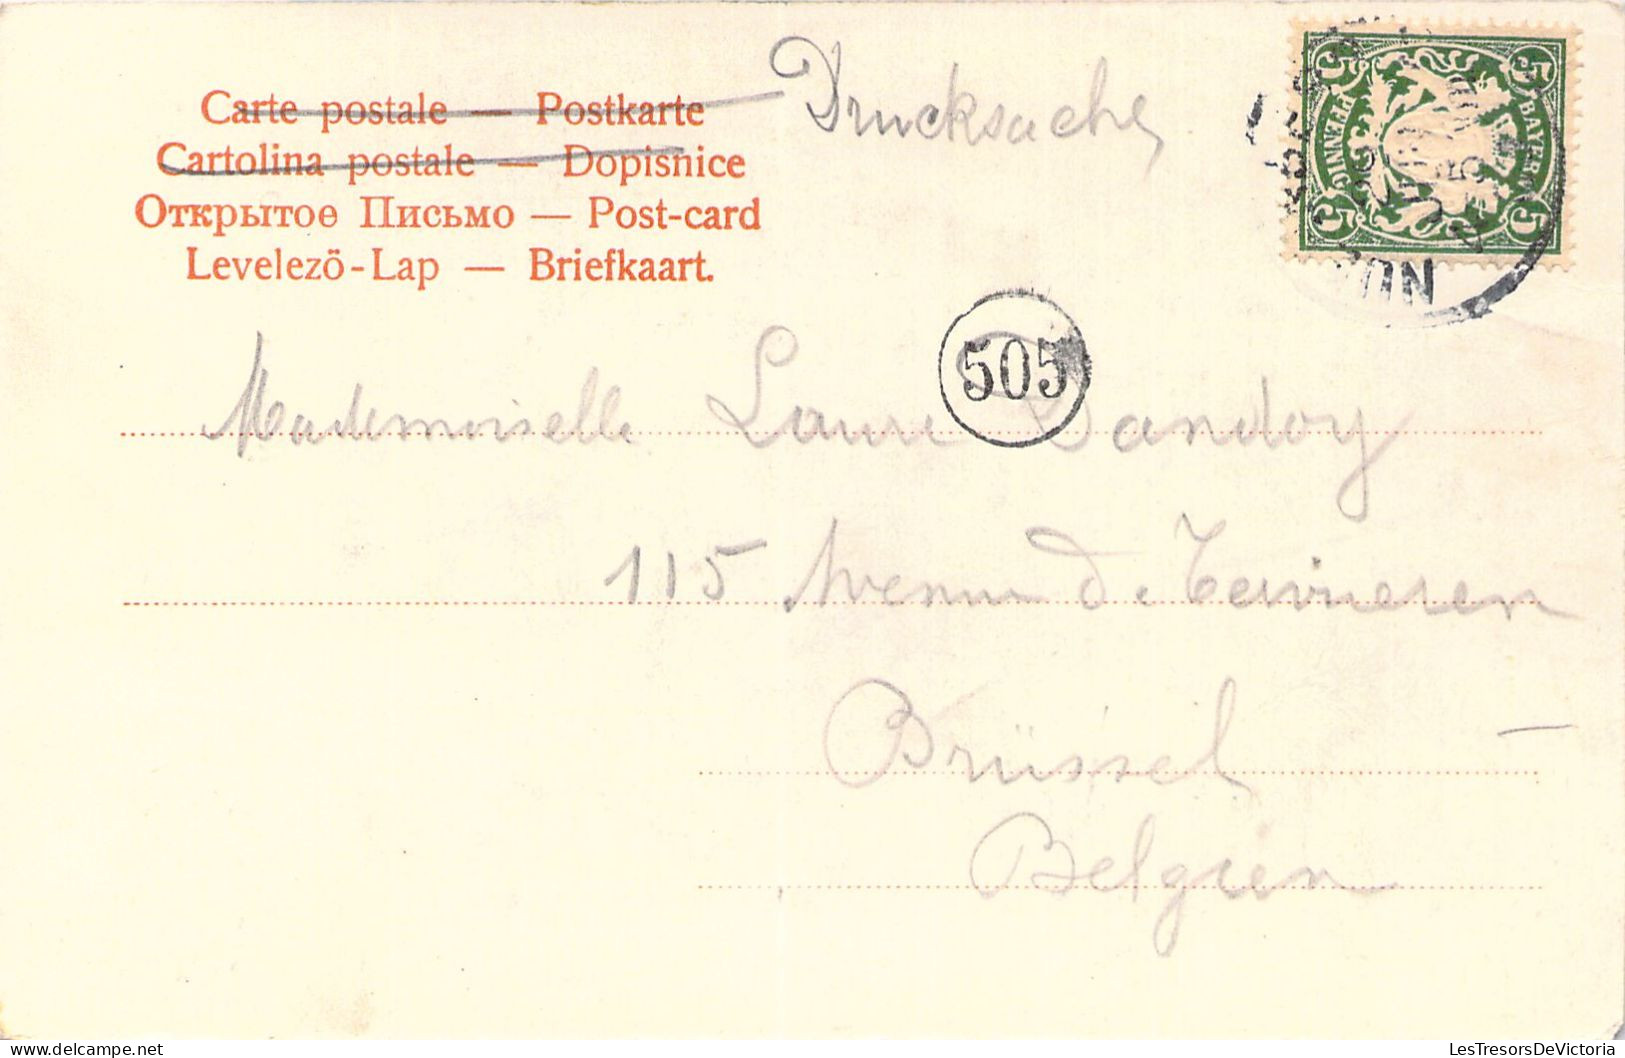 Carte postale — Postkarte
Drucksache
Cartolina postale — Dopisnice
Открытоѳ Письмо — Post-card
Levelezö-Lap — Briefkaart.
5 5
BAYERN
PFENNIG
5 5
505
Mademoiselle Laure Dandoy
115 Avenue de Tervueren
Brüssel
Belgien
LesTresorsDeVictoria